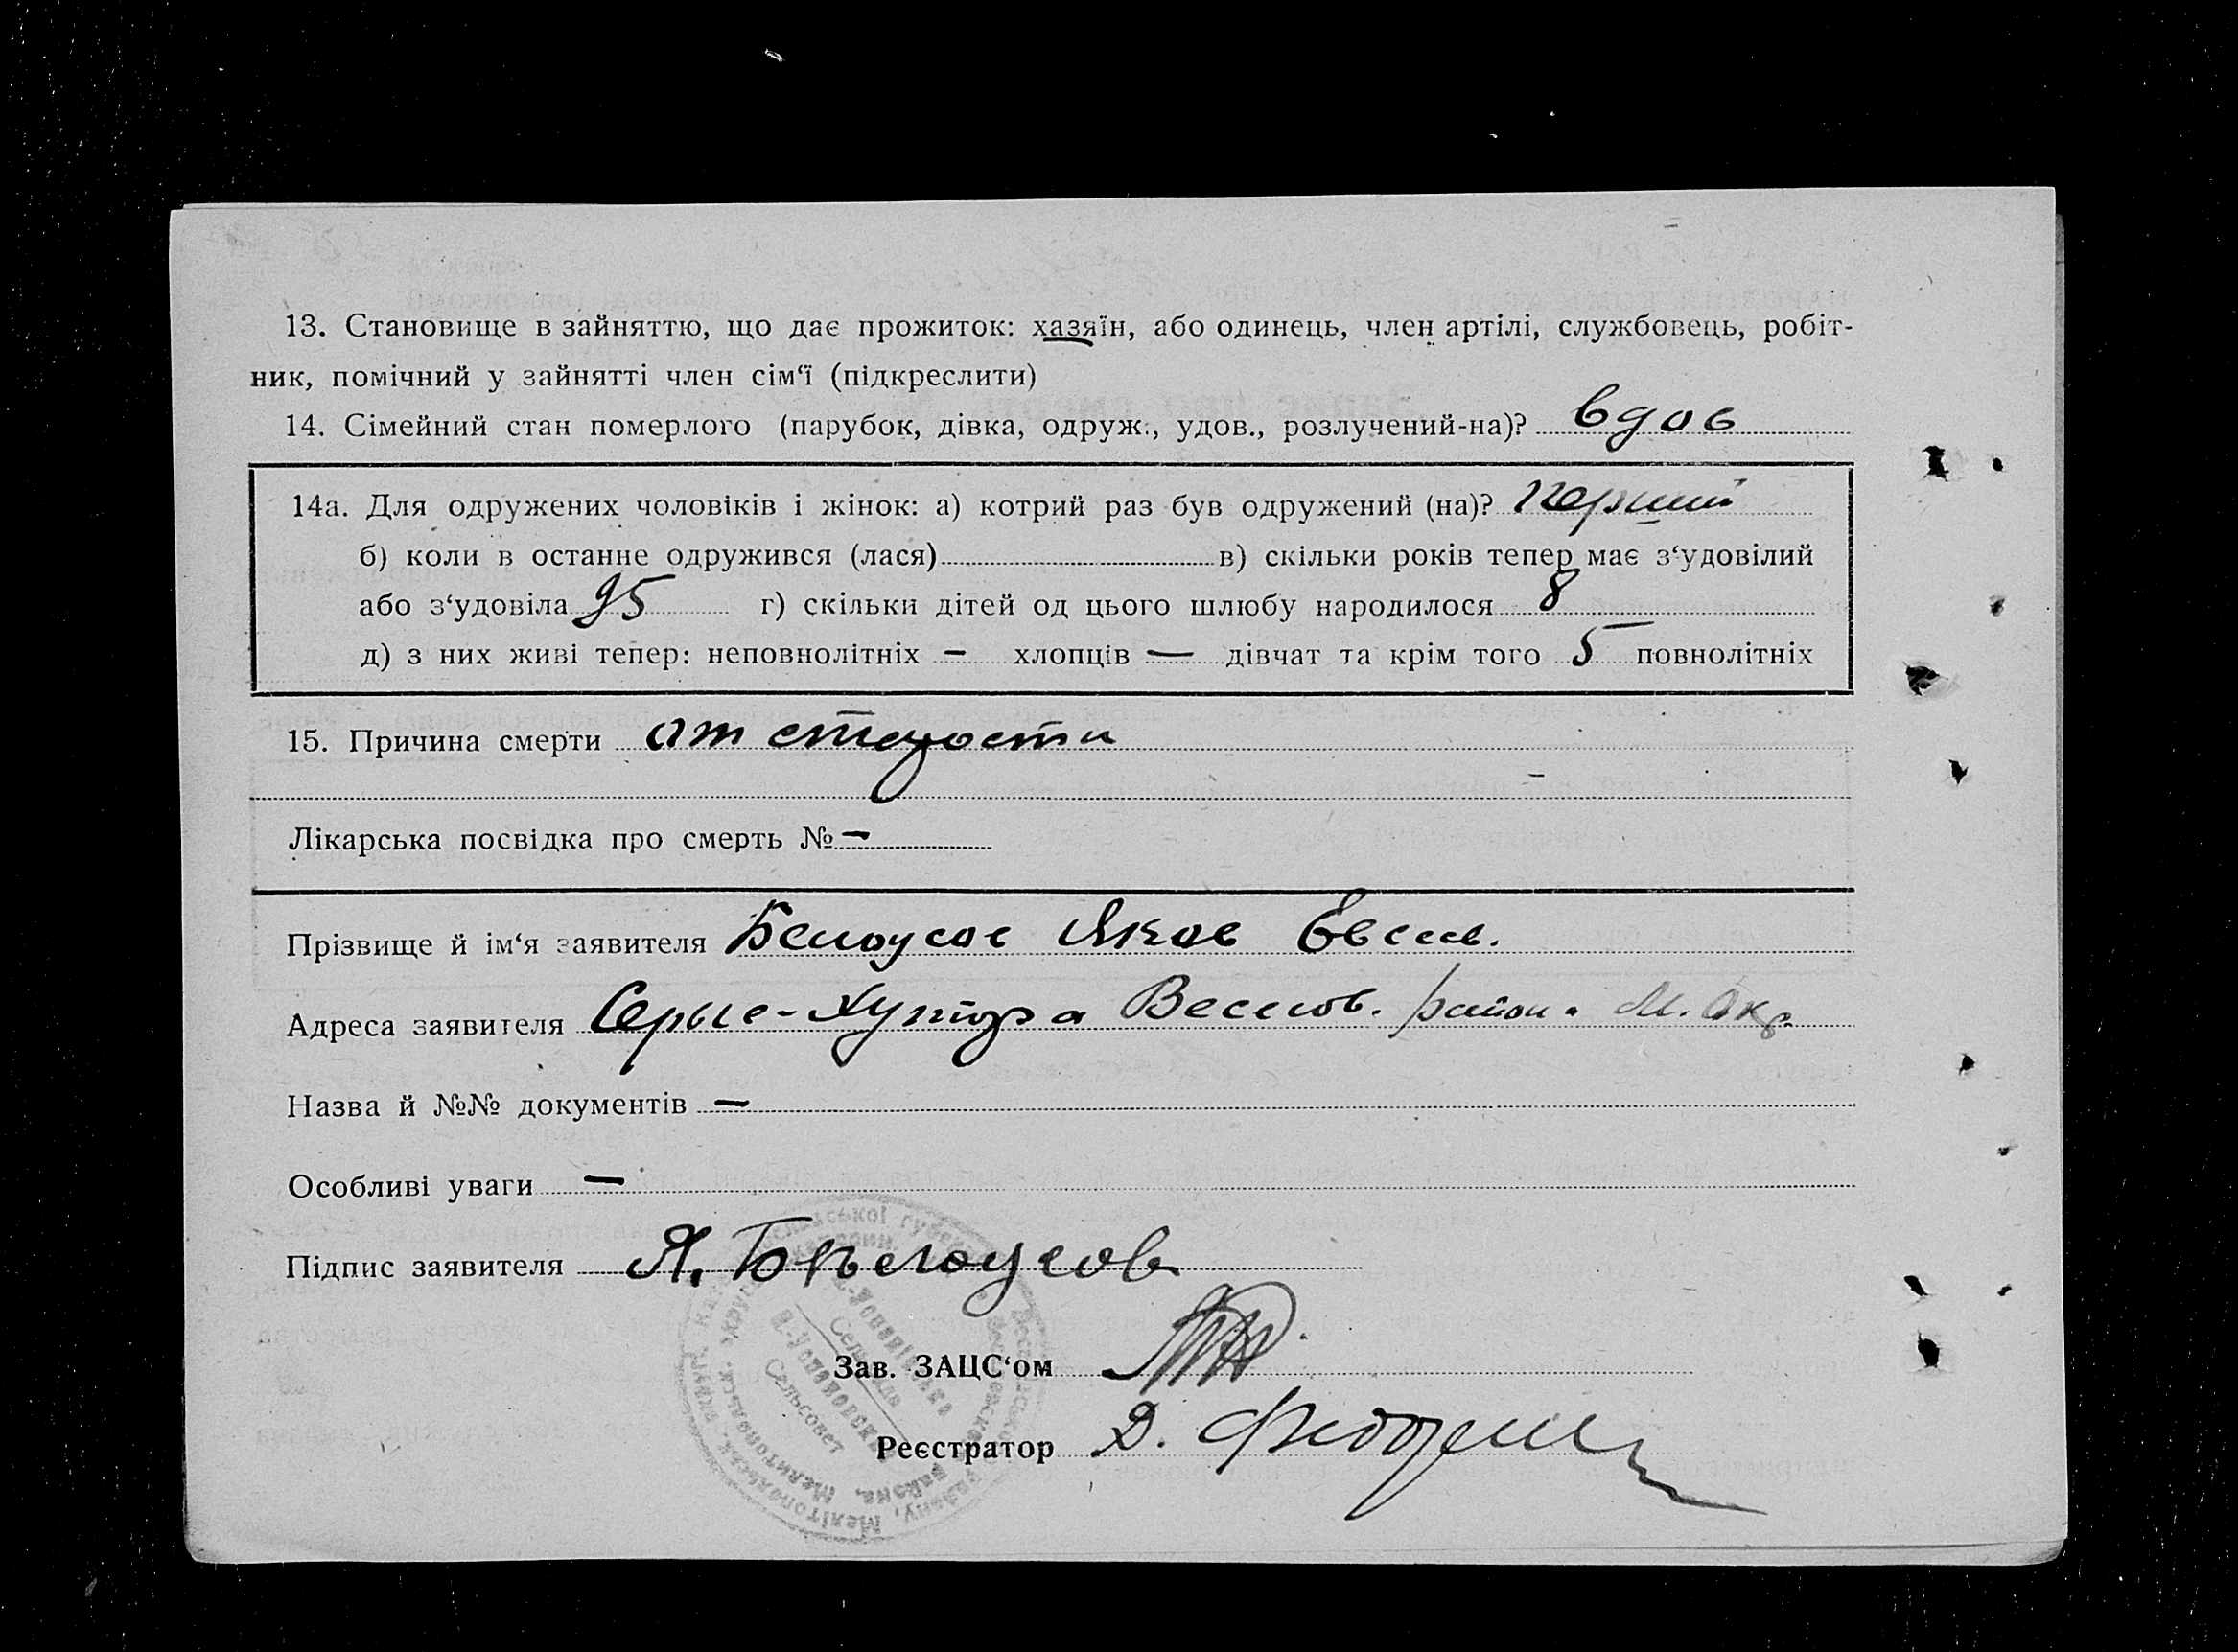 13. Становище в зайняттю, що дає прожиток: хазяїн, або одинець, член артілі, службовець, робіт-
ник, помічний у зайнятті член сім‘ї (підкреслити)
14. Сімейний стан померлого (парубок, дівка, одруж., удов., розлучений-на)? вдов
14а. Для одружених чоловіків і жінок: а) котрий раз був одружений (на)? Перший
б) коли в останнє одружився (лася) в) скільки років тепер має з‘удовілий
або з‘удовіла 95 г) скільки дітей од цього шлюбу народилося 8
д) з них живі тепер: неповнолітніх – хлопців — дівчат та крім того 5 повнолітніх
15. Причина смерти от старости
Лікарська посвідка про смерть № –
Прізвище й ім‘я заявителя Белоусов Яков Евсеев.
Адреса заявителя Серые-Хутора Веселов. район. М. Окр.
Назва й №№ документів —
Особливі уваги —
Підпис заявителя Я. Бѣлоусов
Зав. ЗАЦС‘ом
Реєстратор Д.
Сельсовет